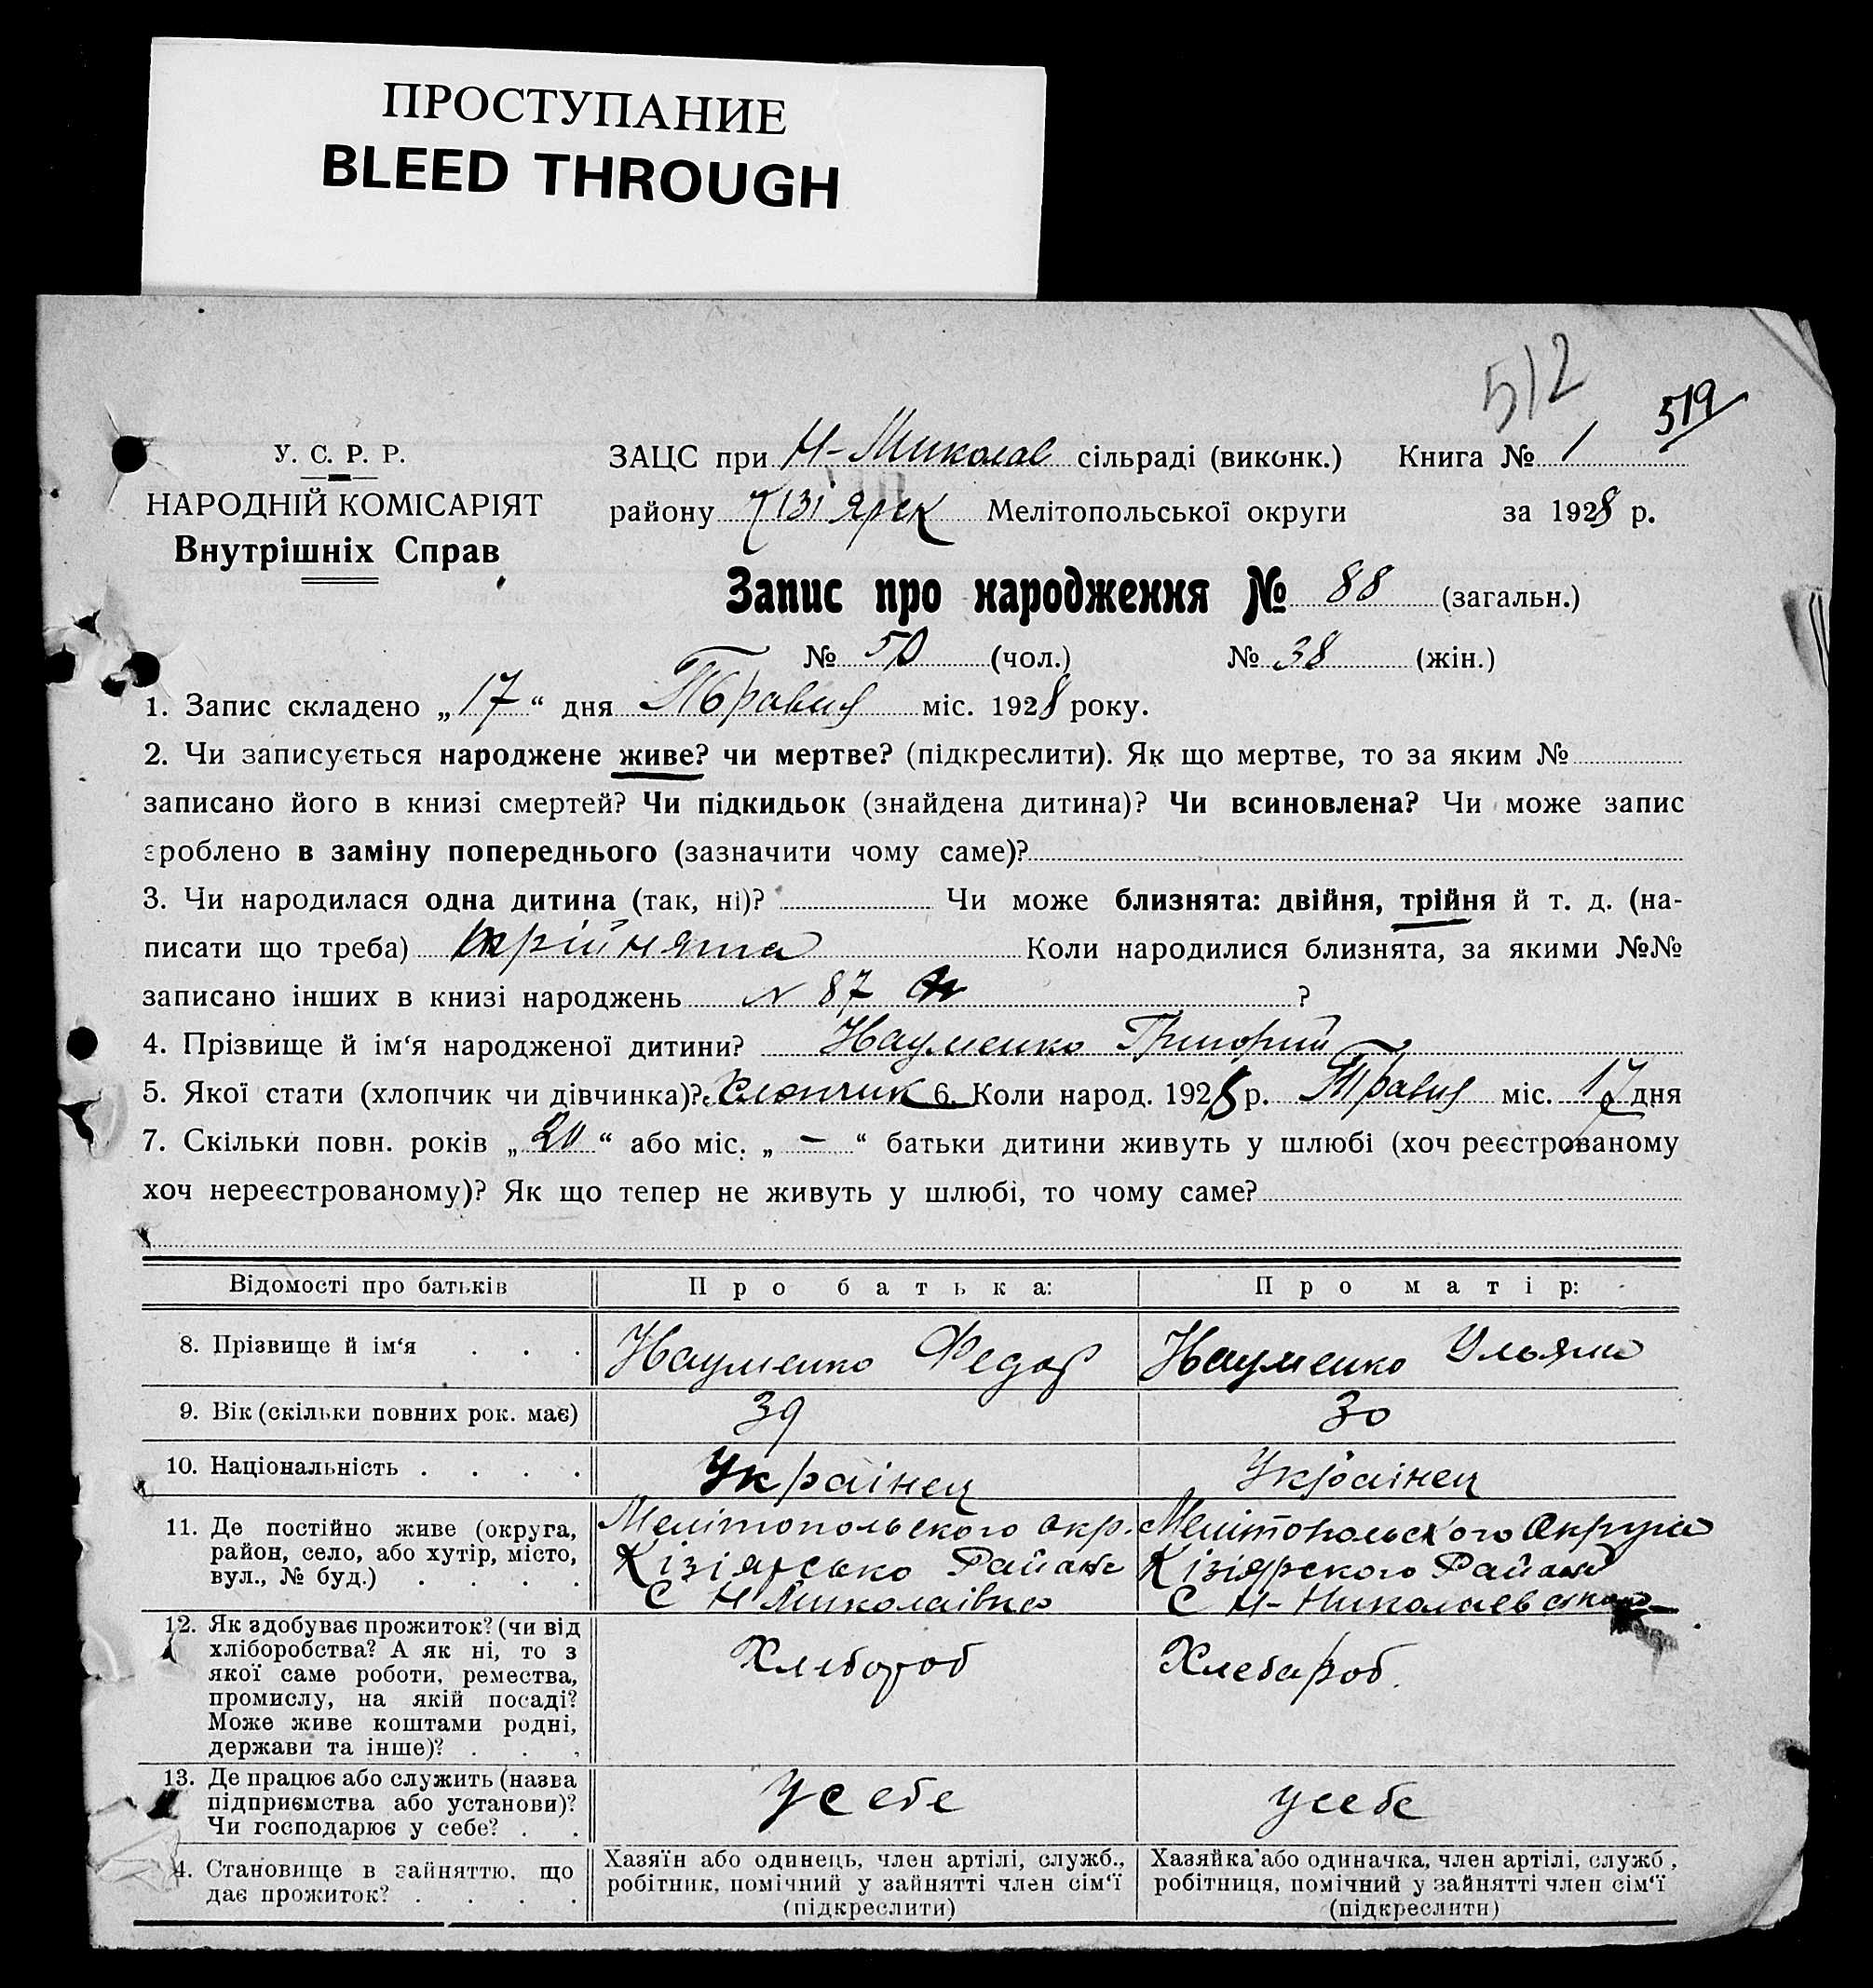 ПРОСТУПАНИЕ
BLEED THROUGH
512
519
У. С. Р. Р.
НАРОДНІЙ КОМІСАРІЯТ
Внутрішніх Справ
ЗАЦС при Н-Миколав сільраді (виконк.) Книга № 1
району Кізіярск Мелітопольської округи за 1928 р.
Запис про народження № 88 (загальн.)
№ 50 (чол.) № 38 (жін.)
1. Запис складено „17“ дня Травня міс. 1928 року.
2. Чи записується народжене живе? чи мертве? (підкреслити). Як що мертве, то за яким №
записано його в книзі смертей? Чи підкидьок (знайдена дитина)? Чи всиновлена? Чи може запис
зроблено в заміну попереднього (зазначити чому саме)?
3. Чи народилася одна дитина (так, ні)? Чи може близнята: двійня, трійня й т. д. (на-
писати що треба) трійнята Коли народилися близнята, за якими №№
записано інших в книзі народжень № 87 ?
4. Прізвище й ім‘я народженої дитини? Науменко Григорий
5. Якої стати (хлопчик чи дівчинка)? Хлопчик 6. Коли народ. 1928 р. Травня міс. 17 дня
7. Скільки повн. років „20“ або міс. „ — “ батьки дитини живуть у шлюбі (хоч реєстрованому
хоч нереєстрованому)? Як що тепер не живуть у шлюбі, то чому саме?
Відомості про батьків Про батька: Про матір:
8. Прізвище й ім‘я . . . Науменко Федор Науменко Ульяна
9. Вік (скільки повних рок. має) 39 30
10. Національність . . . . Украінец Украінец
11. Де постійно живе (округа, Мелітопольского окр. Мелітопольского Округа
район, село, або хутір, місто, Кізіярсько Района Кізіярского Района
вул., № буд.) . . . . С Н Миколаівка С Н-
12. Як здобуває прожиток? (чи від
хліборобства? А як ні, то з Хлебороб Хлебароб.
якої саме роботи, ремества,
промислу, на якій посаді?
Може живе коштами родні,
держави та інше)? . . .
13. Де працює або служить (назва
підприємства або установи)? У себе у себе
Чи господарює у себе? . .
4. Становище в зайняттю, що Хазяїн або одинець, член артілі, служб., Хазяйка або одиначка, член артілі, служб.,
дає прожиток? . . . . робітник, помічний у зайнятті член сім‘ї робітниця, помічний у зайнятті член сім‘ї
(підкреслити) (підкреслити)